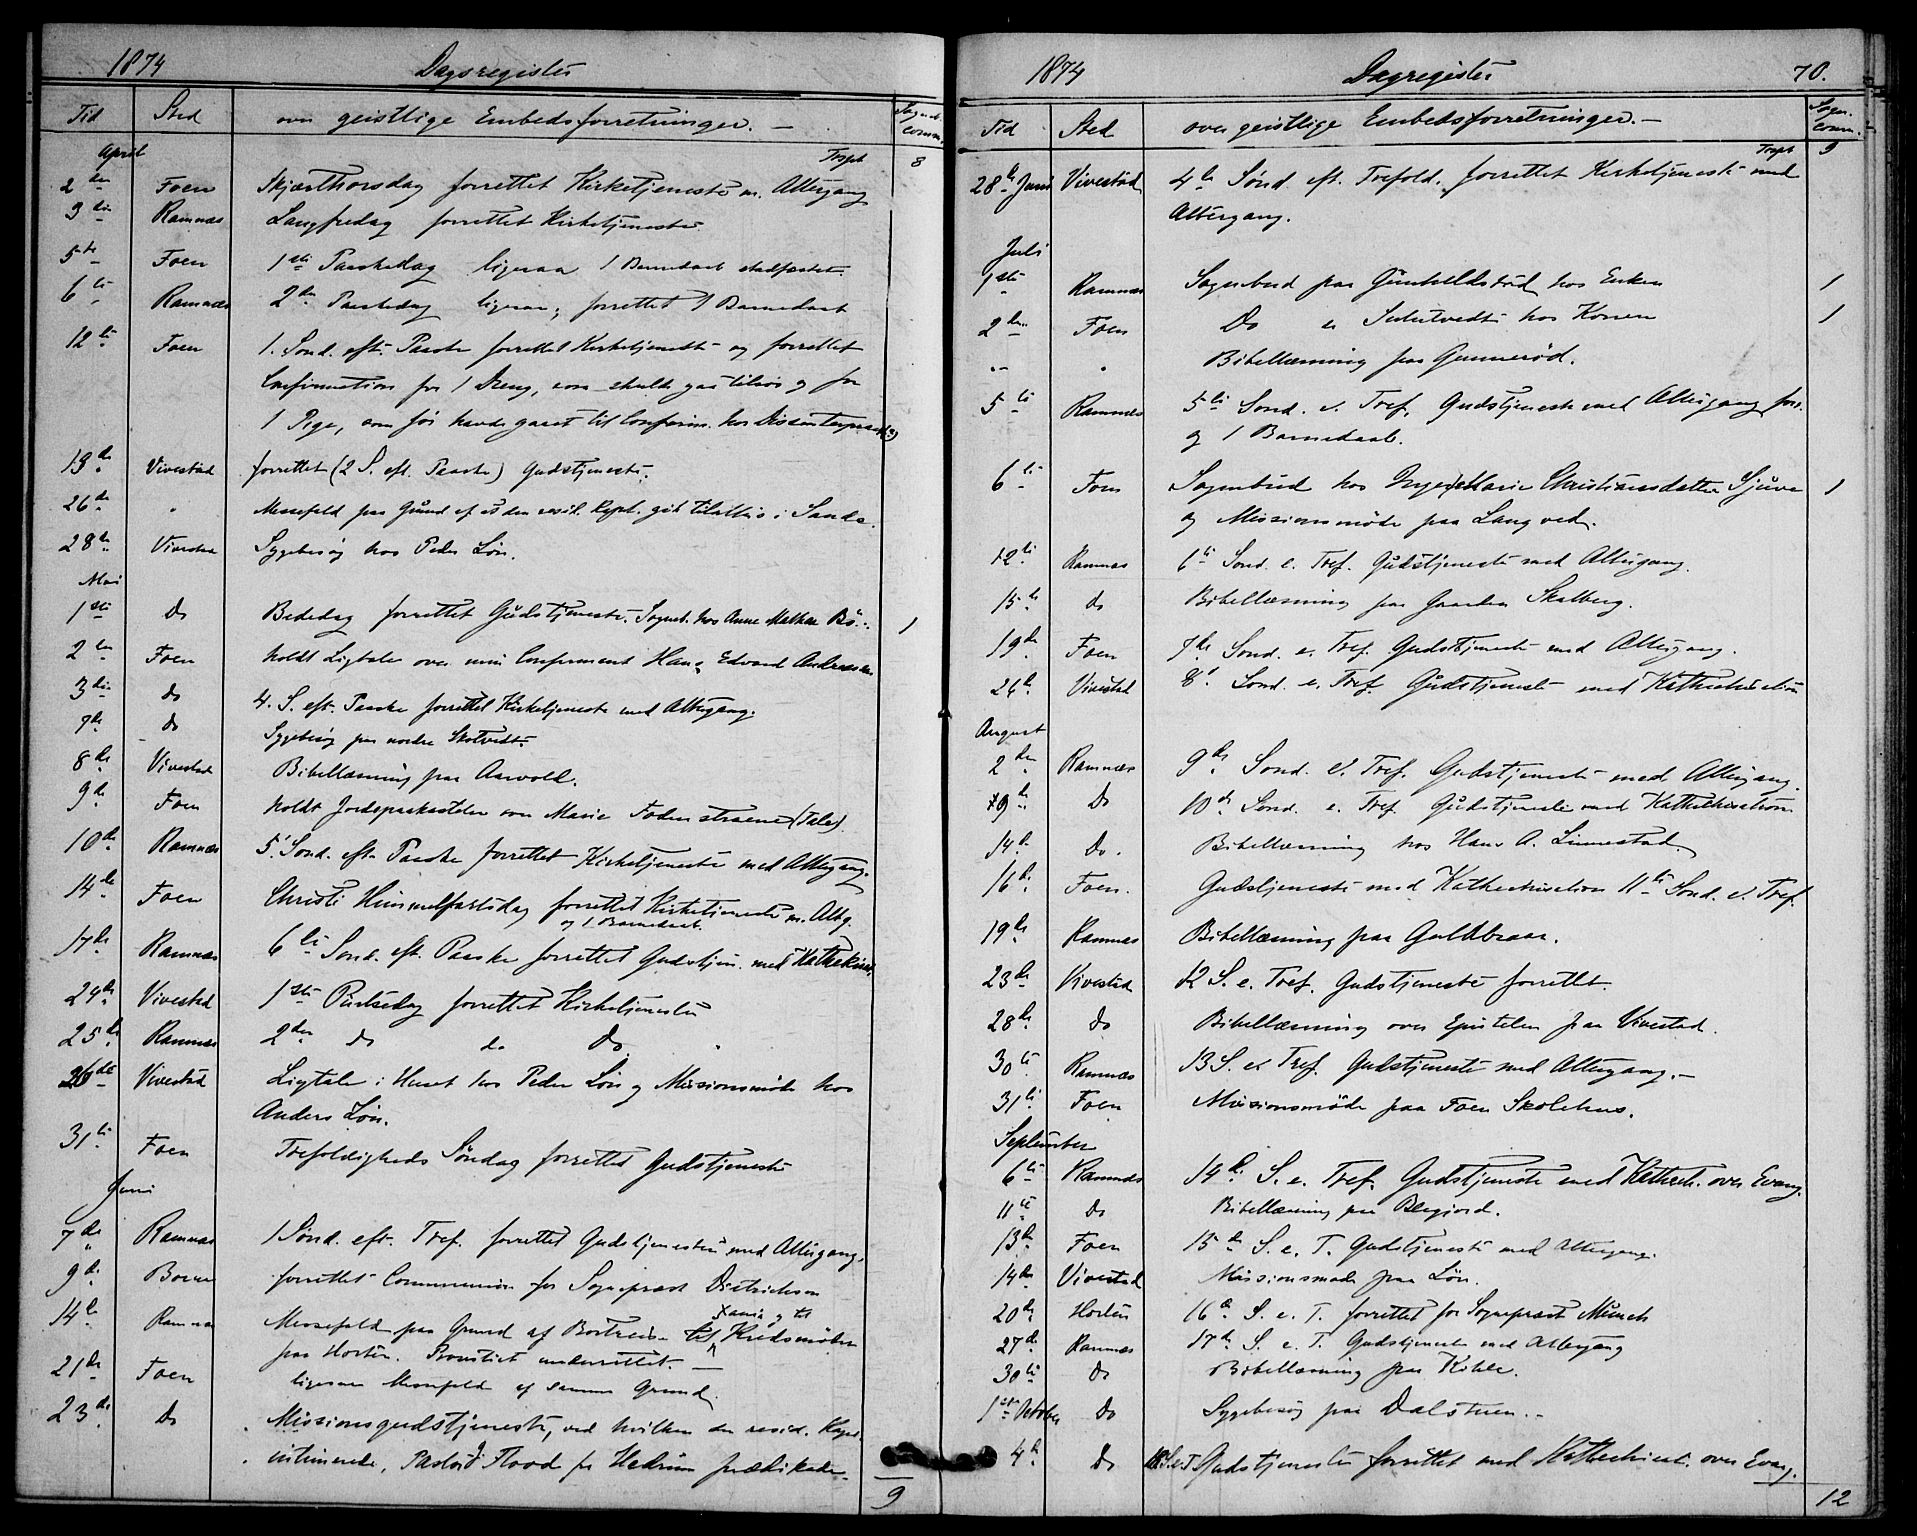 1874 Dagsregister
Tid Sted over geistlige Embedsforretninger. — Sogneb. Comm.
April Trspt 8
2den Foen Skjærthorsdag forrettet Kirketjeneste m. Altergang
3die Ramnæs Langfredag forrettet Kirketjeneste
5te Foen 1ste Paaskedag ligesaa 1 Barnedaab stadfæstet.
6te Ramnæs 2den Paaskedag ligesaa, forrettet 1 Barnedaab
12te Foen 1. Sønd. eft. Paaske forrettet Kirketjeneste og forrettet
Confirmation for 1 Dreng, som skulde gaa tilsøs og for
1 Pige, som før havde gaaet til Confirm. hos
13de Vivestad forrettet (2 S. eft. Paaske) Gudstjeneste.
26de " Messefald paa Grund af at den resid. Kapel. gik til i Sande.
28de Vivestad Sygebesøg hos Peder Løn.
Mai
1ste Do Bededag forrettet Gudstjeneste. Sogneb. hos Anne Mathea Bø. 1
2den Foen holdt Ligtale over min Confirmant Hans Edvard Andreassen
3die do 4. S. eft. Paaske forrettet Kirketjeneste med Altergang.
7de do Sygebesøg paa nordre Skotvedt.
8de Vivestad Bibellæsning paa Aasvold.
9de Foen holdt Jordspaakastelse over Marie (Tale)
10de Ramnæs 5. Sønd. eft. Paaske forrettet Kirketjeneste med Altergang.
14de Foen Christi Himmelfartsdag forrettet Kirketjeneste m. Altg.
og 1 Barnedaab.
17de Ramnæs 6te Sønd. eft. Paaske forrettet Gudstjen. med Kathekis.
24de Vivestad 1ste Pintsedag forrettet Kirketjeneste
25de Ramnæs 2den do do Do
26de Vivestad Ligtale i Huset hos Peder Løn og Missionsmøde hos
Anders Løn.
31te Foen Trefoldigheds Søndag forrettet Gudstjeneste
Juni
7de Ramnæs 1 Sønd. eft. Tref. forrettet Gudstjeneste med Altergang.
9de Borre forrettet Communion for Sognepræst Dietrichson
14de Ramnæs Messefald paa Grund af Bortreise til Kredsmøder
paa Horten. Provstiet underrettet. —
21de Foen ligesaa Messefald af samme Grund.
23de Do Missionsgudstjeneste, ved hvilken den resid. Kapel.
intimerede, Pastor J. Flood fr Hedrum prædikede.
9
1874 Dagregister 70.
Tid Sted over geistlige Embedsforretninger. — Sogn. Comm.
Trspt 9
28de Juni Vivestad 4de Sønd. eft. Trefold. forrettet Kirketjeneste med
Altergang.
Juli
1ste Ramnæs Sognebud paa Gunhildsrød hos Enken 1
2den Foen Do hos Konen 1
" " Bibellæsning paa Gunnerød.
5te Ramnæs 5te Sønd. e. Tref. Gudstjeneste med Altergang forr.
og 1 Barnedaab.
6te Foen Sognebud hos Inger Marie Christiansdatter Sjuve 1
og Missionsmøde paa Langved.
12te Ramnæs 6te Sønd. e. Tref. Gudstjeneste med Altergang.
15de do Bibellæsning paa Gaarden Skalberg.
19de Foen 7de Sønd. e. Tref. Gudstjeneste med Altergang.
26de Vivestad 8de Sønd. e. Tref. Gudstjeneste med Kathechisation
August
2den Ramnæs 9de Sønd. e. Tref. Gudstjeneste med Altergang.
9de Do 10de Sønd. e. Tref. Gudstjeneste med Kathechisation
14de Do. Bibellæsning hos Hans A. Linnestad.
16de Foen. Gudstjeneste med Kathechisation 11te Sønd. e. Tref.
19de Ramnæs Bibellæsning paa Guldbraar.
23de Vivestad 12 S. e. Tref. Gudstjeneste forrettet.
28de Do Bibellæsning over Epistelen paa Vivestad.
30te Ramnæs 13 S. e. Tref. Gudstjeneste med Altergang. —
31te Foen Missionsmøde paa Foen Skolehus.
September
6te Ramnæs 14de S. e. Tref. Gudstjeneste med Kathech. over Evang.
11te Do Bibellæsning paa Bergjord.
13de Foen 15de S. e. T. Gudstjeneste med Altergang.
14de Vivestad Missionsmøde paa Løn.
20de Horten 16de S. e. T. forrettet for Sognepræst Munch
27de Ramnæs 17de S. e. T. Gudstjeneste med Altergang
30te Do Bibellæsning paa Kihle.
1ste October Do Sygebesøg paa Dalstuen. —
4de Do 18 S. e. T. Gudstjeneste forrettet med Kathechisat. over Evang.
12